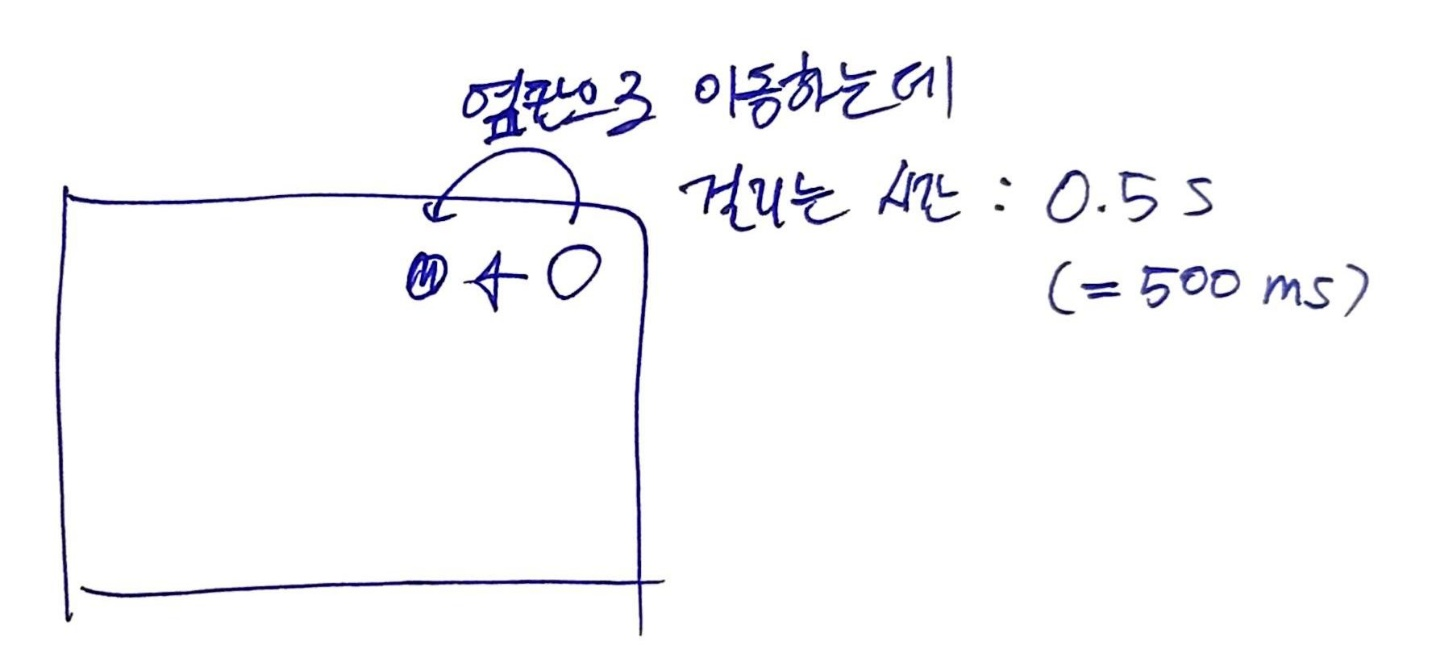 옆판으로 이동하는데
걸리는 시간 : 0.5 s
(= 500 ms)